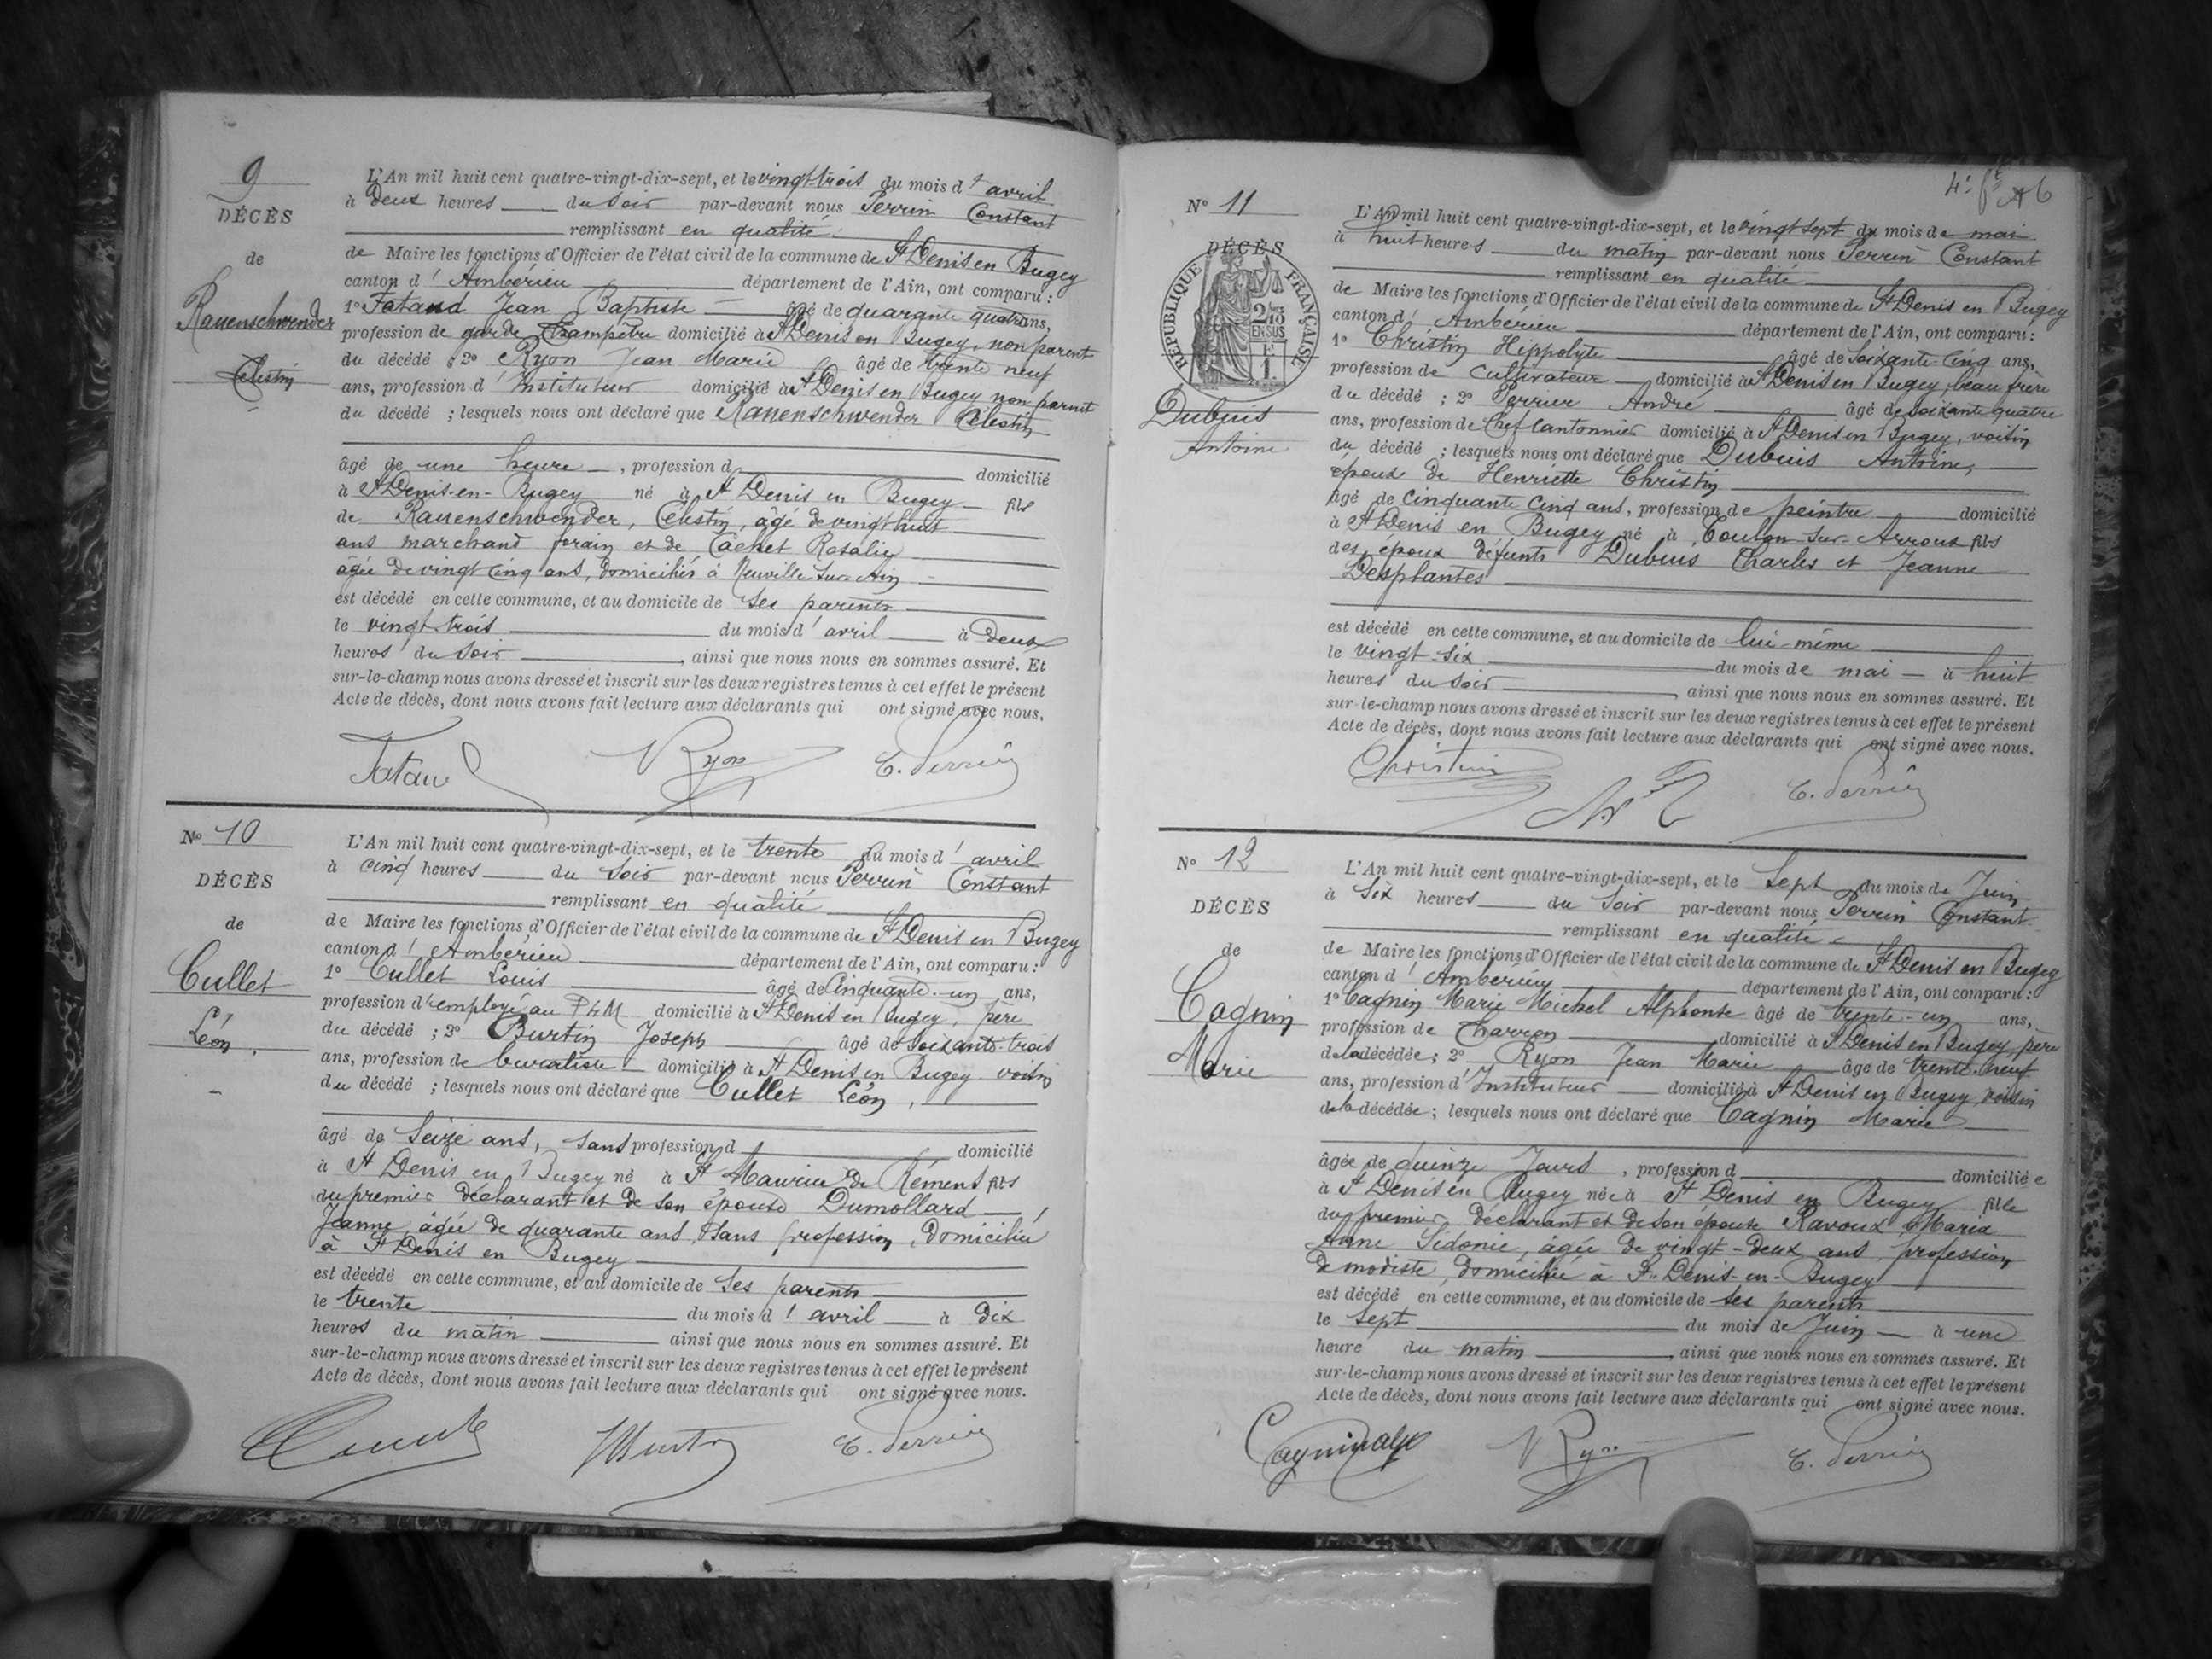 9
DÉCÈS
de
Rauenschwender
Célestin
L'An mil huit cent quatre-vingt-dix-sept, et le vingt trois du mois d'avril
à Deux heures du soir par-devant nous Perrin Constant
remplissant en qualité
de Maire les fonctions d'Officier de l'état civil de la commune de St Denis en Bugey
canton d'Ambérieu département de l'Ain, ont comparu:
1° Fatand Jean Baptiste âgé de quarante quatre ans,
profession de garde champêtre domicilié à St Denis en Bugey, non parent
du décédé ; 2° Ryon Jean Marie âgé de trente neuf
ans, profession d'Instituteur domicilié à St Denis en Bugey non parent
du décédé ; lesquels nous ont déclaré que Rauenschwender Célestin
âgé de une heure, profession d domicilié
à St Denis-en-Bugey né à St Denis en Bugey fils
de Rauenschwender, Célestin, âgé de vingt huit
ans marchand forain et de Cachet Rosalie
âgée de vingt cinq ans, domiciliés à Neuville-sur-Ain
est décédé en cette commune, et au domicile de ses parents
le vingt-trois du mois d'avril à Deux
heures du soir, ainsi que nous nous en sommes assuré. Et
sur-le-champ nous avons dressé et inscrit sur les deux registres tenus à cet effet le présent
Acte de décès, dont nous avons fait lecture aux déclarants qui ont signé avec nous.
Ryon C. Perrin
N° 10
DÉCÈS
de
Cullet
Léon
L'An mil huit cent quatre-vingt-dix-sept, et le trente du mois d'avril
à cinq heures du soir par-devant nous Perrin Constant
remplissant en qualité
de Maire les fonctions d'Officier de l'état civil de la commune de St Denis en Bugey
canton d'Ambérieu département de l'Ain, ont comparu:
1° Cullet Louis âgé de Cinquante-un ans,
profession d'employé au PLM domicilié à St Denis en Bugey, père
du décédé ; 2° Burtin Joseph âgé de soixante-trois
ans, profession de buraliste domicilié à St Denis en Bugey voisin
du décédé ; lesquels nous ont déclaré que Cullet Léon,
âgé de seize ans, sans profession d domicilié
à St Denis en Bugey né à St Maurice de Rémens fils
du premier déclarant et de son épouse Dumollard
Jeanne, âgée de quarante ans, sans profession, domiciliée
à St Denis en Bugey
est décédé en cette commune, et au domicile de ses parents
le trente du mois d'avril à dix
heures du matin ainsi que nous nous en sommes assuré. Et
sur-le-champ nous avons dressé et inscrit sur les deux registres tenus à cet effet le présent
Acte de décès, dont nous avons fait lecture aux déclarants qui ont signé avec nous.
C. Perrin
N° 11
DÉCÈS
RÉPUBLIQUE FRANÇAISE
2/10 EN SUS
Dubuis
Antoine
L'An mil huit cent quatre-vingt-dix-sept, et le vingt sept du mois de mai
à huit heures du matin par-devant nous Perrin Constant
remplissant en qualité
de Maire les fonctions d'Officier de l'état civil de la commune de St Denis en Bugey
canton d'Ambérieu département de l'Ain, ont comparu:
1° Christin Hippolyte âgé de soixante-cinq ans,
profession de cultivateur domicilié à St Denis en Bugey, beau frère
du décédé ; 2° Perrier André âgé de soixante quatre
ans, profession de Chef cantonnier domicilié à St Denis en Bugey, voisin
du décédé ; lesquels nous ont déclaré que Dubuis Antoine,
époux de Henriette Christin
âgé de cinquante cinq ans, profession de peintre domicilié
à St Denis en Bugey né à Toulon-sur-Arroux fils
des époux défunts Dubuis Charles et Jeanne
Desplantes
est décédé en cette commune, et au domicile de lui-même
le vingt-six du mois de mai à huit
heures du soir, ainsi que nous nous en sommes assuré. Et
sur-le-champ nous avons dressé et inscrit sur les deux registres tenus à cet effet le présent
Acte de décès, dont nous avons fait lecture aux déclarants qui ont signé avec nous.
Christin C. Perrin
N° 12
DÉCÈS
de
Cagnin
Marie
L'An mil huit cent quatre-vingt-dix-sept, et le sept du mois de Juin
à six heures du soir par-devant nous Perrin Constant
remplissant en qualité
de Maire les fonctions d'Officier de l'état civil de la commune de St Denis en Bugey
canton d'Ambérieu département de l'Ain, ont comparu:
1° Cagnin Marie Michel Alphonse âgé de trente-un ans,
profession de charron domicilié à St Denis en Bugey, père
de la décédée ; 2° Ryon Jean Marie âgé de trente-neuf
ans, profession d'Instituteur domicilié à St Denis en Bugey voisin
de la décédée ; lesquels nous ont déclaré que Cagnin Marie
âgée de quinze Jours, profession d domiciliée
à St Denis en Bugey née à St Denis en Bugey fille
du premier déclarant et de son épouse Ravoux Maria
Anne Sidonie, âgée de vingt-deux ans, profession
de modiste, domiciliée à St Denis-en-Bugey
est décédé en cette commune, et au domicile de ses parents
le sept du mois de Juin à une
heure du matin, ainsi que nous nous en sommes assuré. Et
sur-le-champ nous avons dressé et inscrit sur les deux registres tenus à cet effet le présent
Acte de décès, dont nous avons fait lecture aux déclarants qui ont signé avec nous.
Ryon C. Perrin